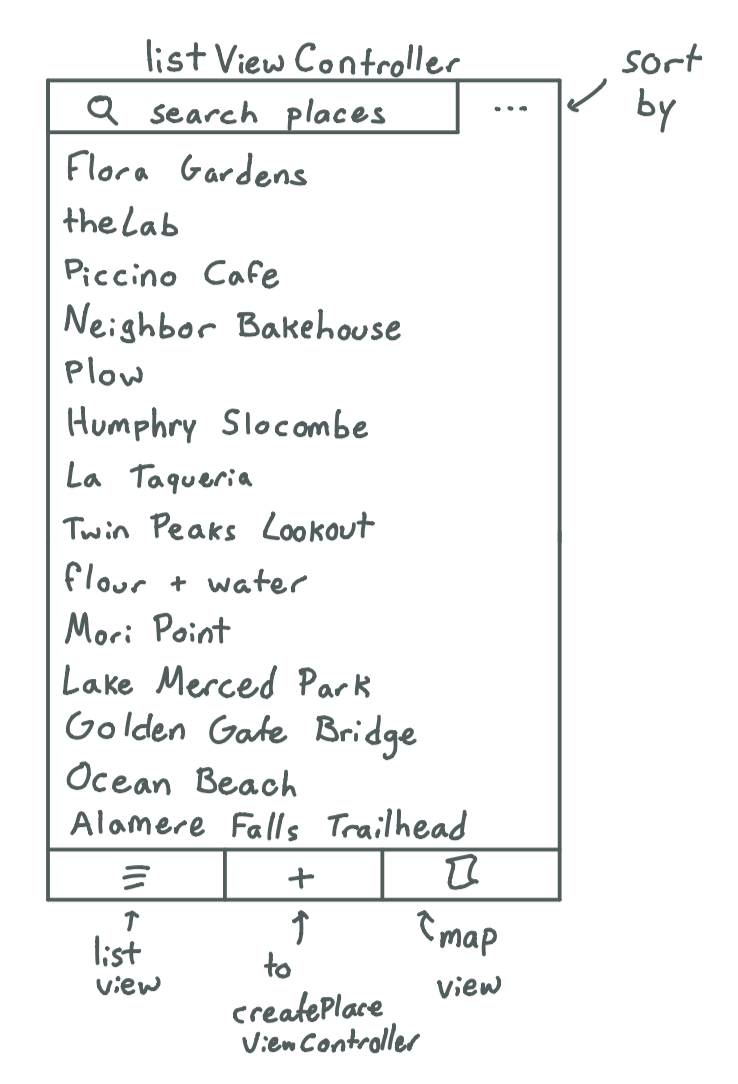 listViewController
sort
by
search places
...
Flora Gardens
theLab
Piccino Cafe
Neighbor Bakehouse
Plow
Humphry Slocombe
La Taqueria
Twin Peaks Lookout
flour + water
Mori Point
Lake Merced Park
Golden Gate Bridge
Ocean Beach
Alamere Falls Trailhead
+
list
view
to
createPlace
ViewController
map
view